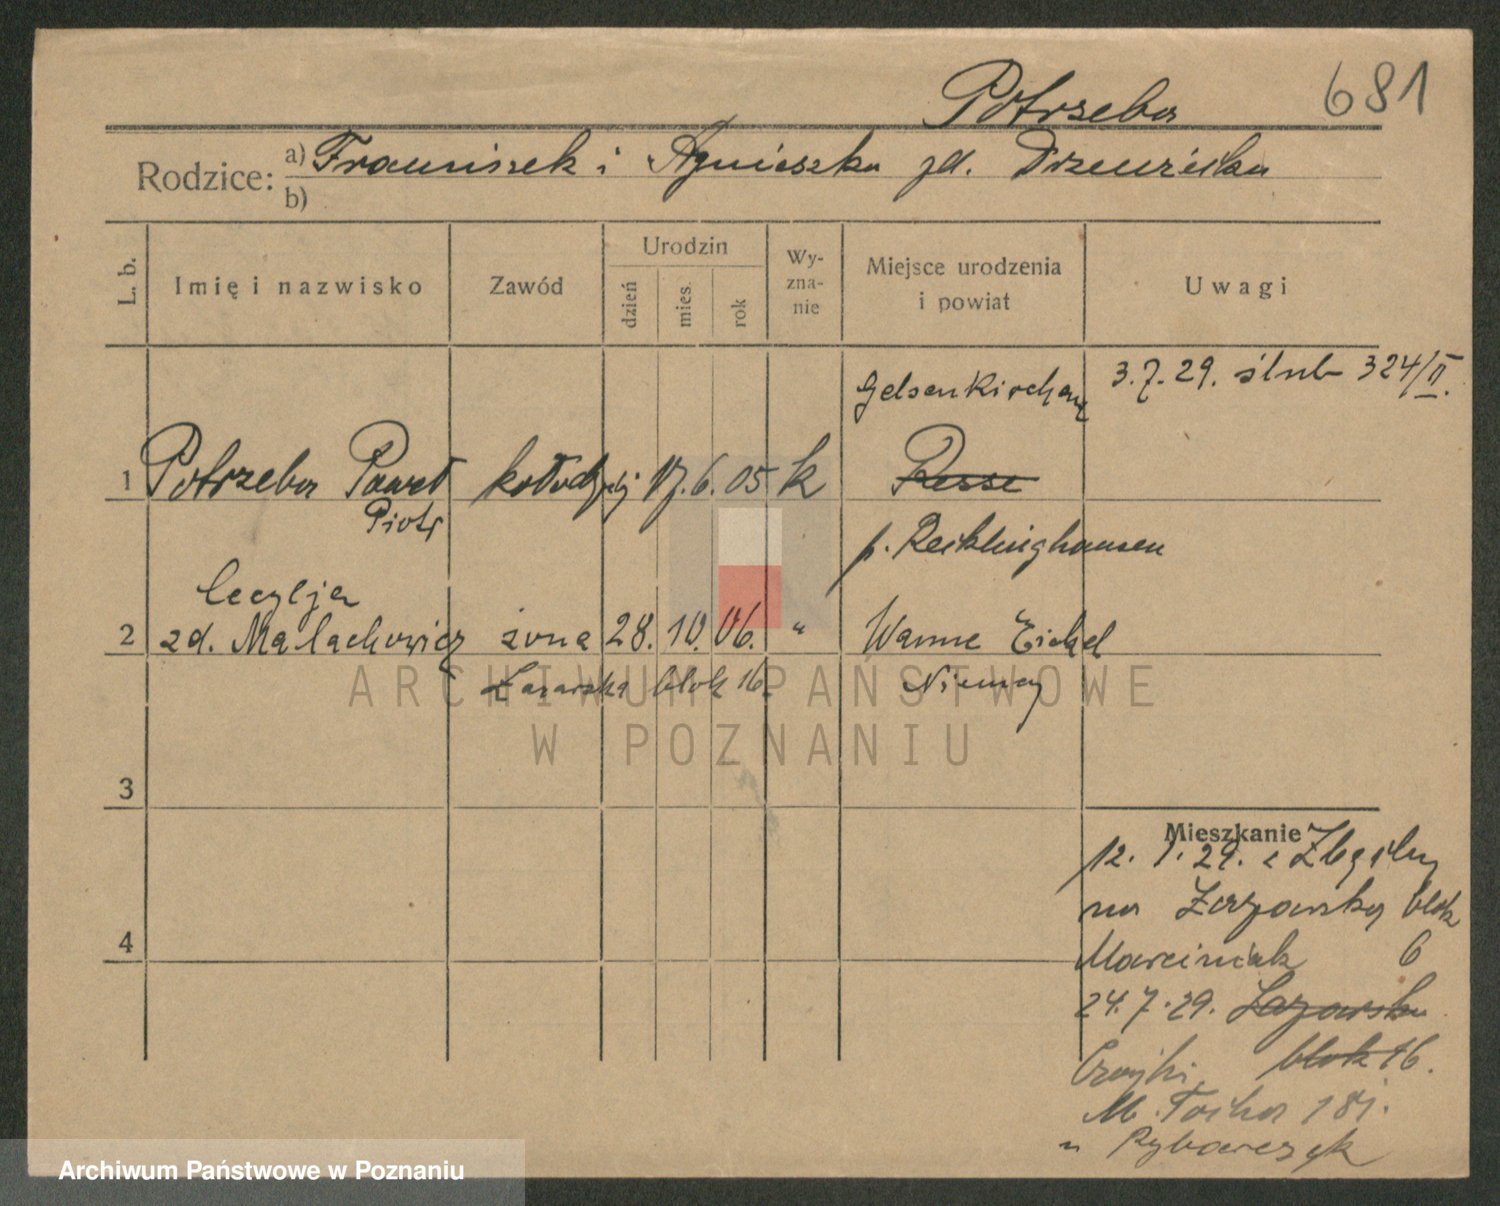 Potrzeba 681
Rodzice: a) Franciszek i Agnieszka zd.
b)
L. b. Imię i nazwisko Zawód Urodzin dzień mies. rok Wyzna-nie Miejsce urodzenia i powiat Uwagi
Gelsenkirchen 3.7.29. ślub 324/II.
1 Potrzeba Paweł kołodziej 17. 6. 05 k Resse
Piotr
p. Recklinghausen
Cecylja
2 zd. Malachowicz żona 28. 10. 06. " Wanne Eickel
Łazarska blok 16. Niemcy
ARCHIWUM PAŃSTWOWE
W POZNANIU
3
Mieszkanie
12. 7. 29. z
na blok
4 Marciniak 6
24. 7. 29. Łazarska
blok 16.
M. Focha 181.
u Rybarczyk
Archiwum Państwowe w Poznaniu